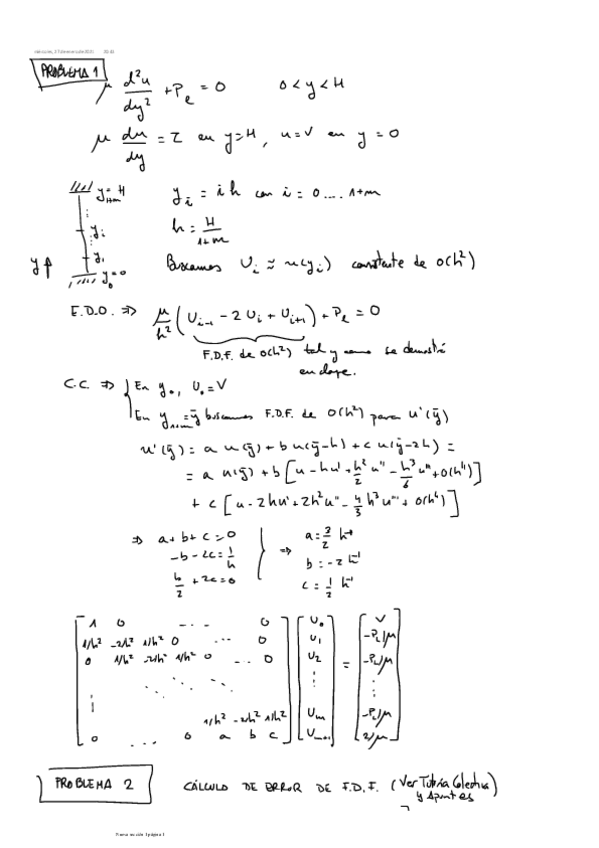 PROBLEMA 1
μ d²u/dy² + P_l = 0    0 < y < H
μ du/dy = τ en y=H, u=V en y=0
y_{1+m} = H
y_i
y_1
y_0 = 0
y
y_i = i h con i = 0 .... 1+m
h = H/(1+m)
Buscamos U_i ≈ u(y_i) constante de O(h²)
E.D.O. ⇒ μ/h² (U_{i-1} - 2 U_i + U_{i+1}) + P_l = 0
F.D.F. de O(h²) tal y como se demostró
en clase.
C.C. ⇒ { En y_0, U_0 = V
En y_{1+m} = ȳ buscamos F.D.F. de O(h²) para u'(ȳ)
u'(ȳ) = a u(ȳ) + b u(ȳ-h) + c u(ȳ-2h) =
= a u(ȳ) + b [u - hu' + h²/2 u'' - h³/6 u''' + O(h⁴)]
+ c [u - 2hu' + 2h² u'' - 4/3 h³ u''' + O(h⁴)]
⇒ a + b + c = 0
-b - 2c = 1/h
b/2 + 2c = 0
⇒ a = 3/2 h⁻¹
b = -2 h⁻¹
c = 1/2 h⁻¹
1 0 ... 0 U_0 V
1/h² -2/h² 1/h² 0 ... 0 U_1 -P_l/μ
0 1/h² -2/h² 1/h² 0 ... 0 U_2 = -P_l/μ
1/h² -2/h² 1/h² U_m -P_l/μ
0 ... 0 a b c U_{m+1} τ/μ
PROBLEMA 2 CÁLCULO DE ERROR DE F.D.F. (Ver Tutoría Colectiva
y Apuntes)